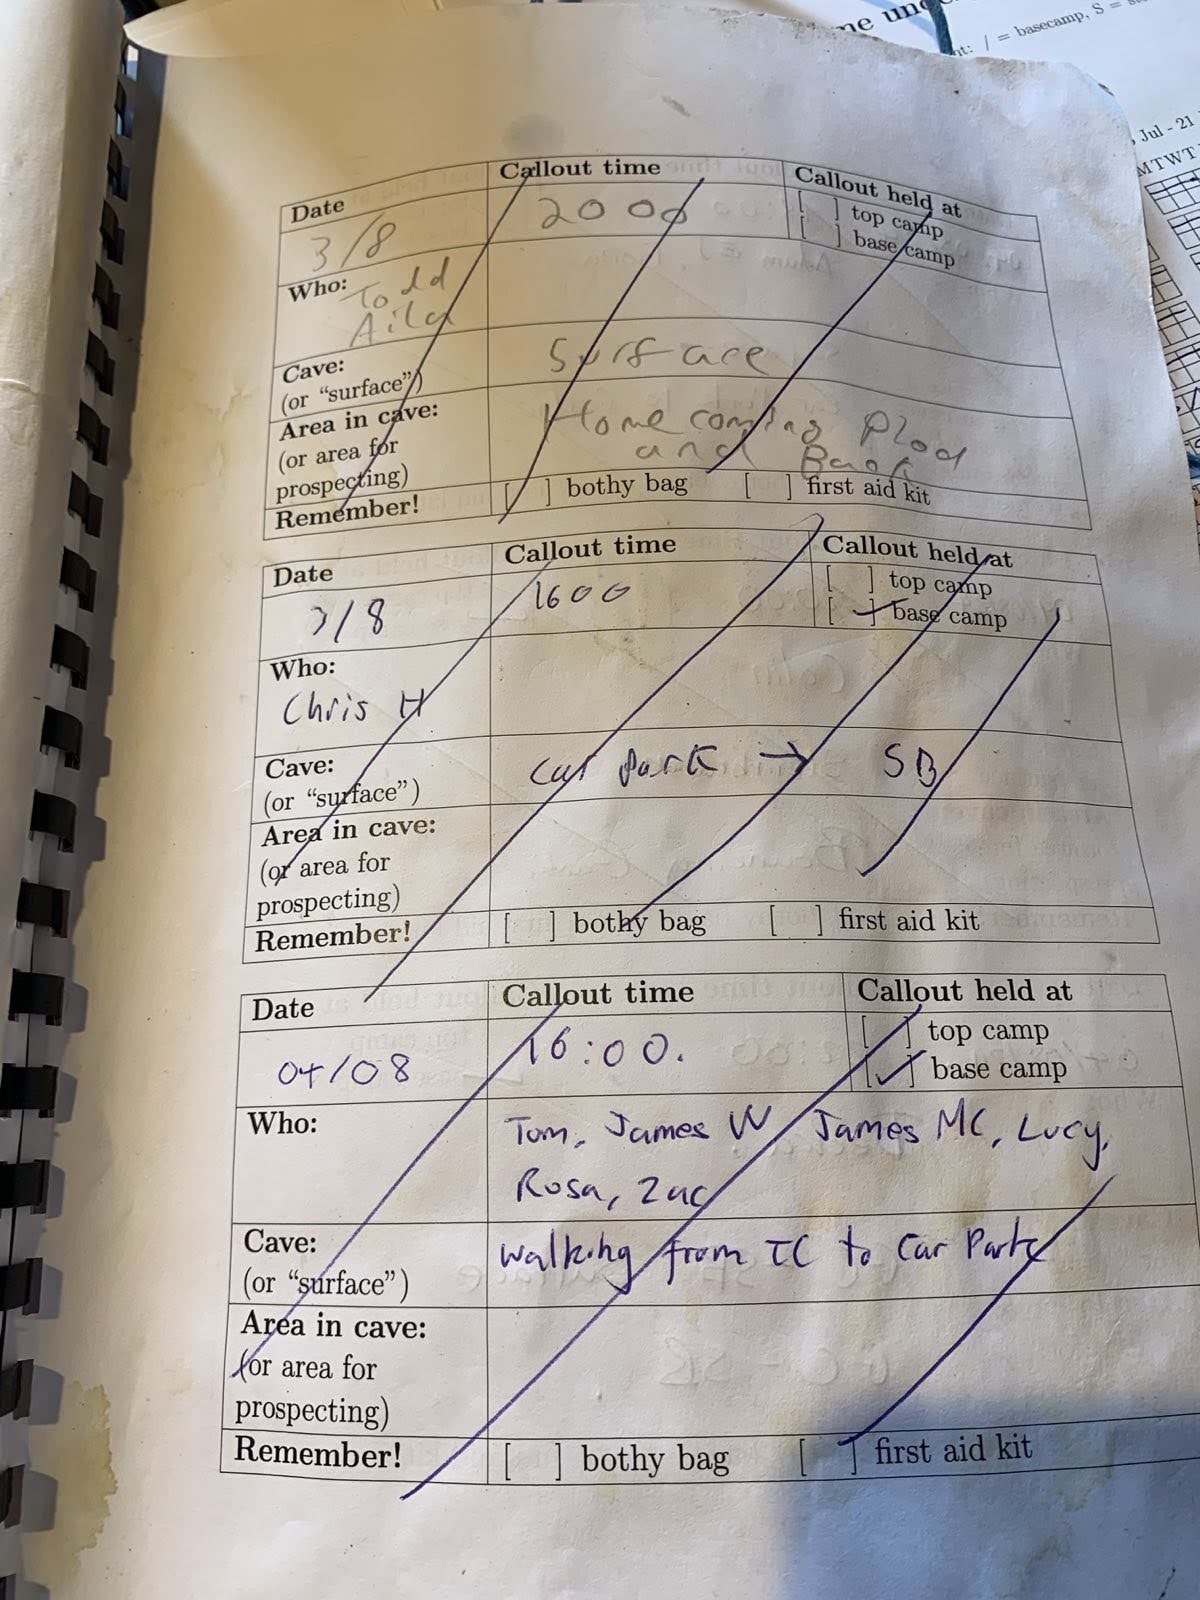 nt: / = basecamp, S =
, Jul - 21
MTWT
Date Callout time Callout held at
3/8 2000 [ ] top camp
[ ] base camp
Who: Todd
Aila
Cave: Surface
(or “surface”)
Area in cave: Homecoming Plod
(or area for and Back
prospecting)
Remember! [ ] bothy bag [ ] first aid kit
Date Callout time Callout held at
3/8 1600 [ ] top camp
[ ] base camp
Who:
Chris H
Cave: Car park → SB
(or “surface”)
Area in cave:
(or area for
prospecting)
Remember! [ ] bothy bag [ ] first aid kit
Date Callout time Callout held at
04/08 16:00. [ ] top camp
[✓] base camp
Who: Tom, James W James MC, Lucy,
Rosa, Zac
Cave: Walking from TC to Car Park
(or “surface”)
Area in cave:
(or area for
prospecting)
Remember! [ ] bothy bag [ ] first aid kit